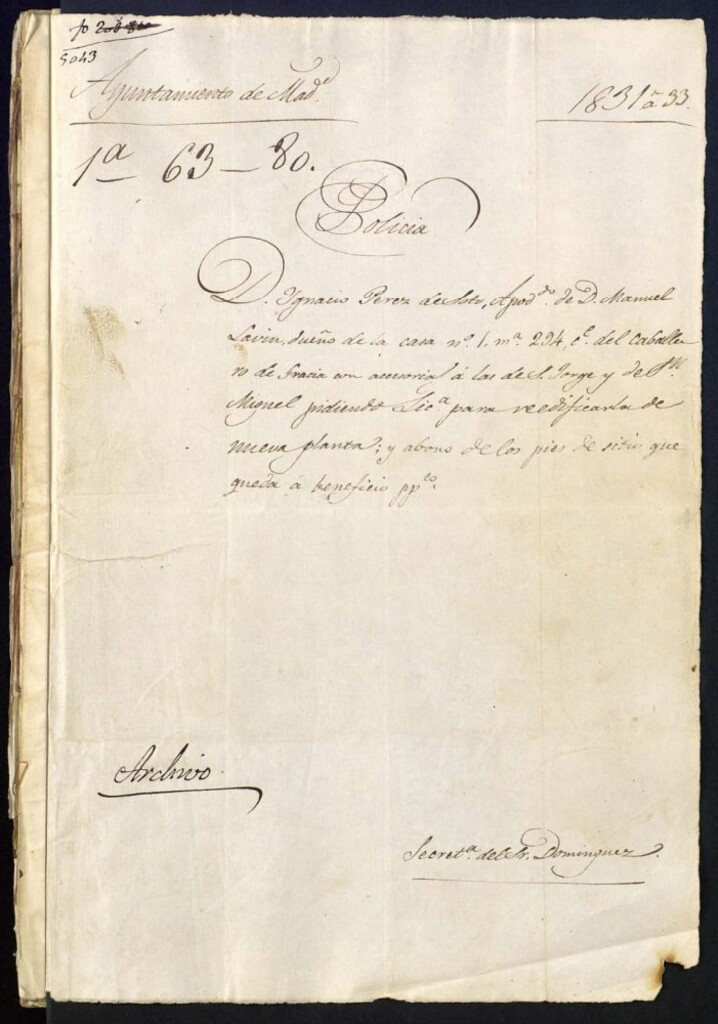 5043
Ayuntamiento de Mad.d
1831 á 33.
1ª 63-80.
Policia
D. Ygnacio Perez de Soto, Apod.do de D. Manuel
Lavin, dueño de la casa nº. 1. mª. 294, c.e del caballe
ro de Gracia con accesorias á las de S. Jorge y de S.n
Miguel pidiendo Lic.ª para reedificarla de
nueva planta; y abono de los pies de sitio que
queda á beneficio pp.co
Archivo
Secret.ª del Sr. Dominguez.